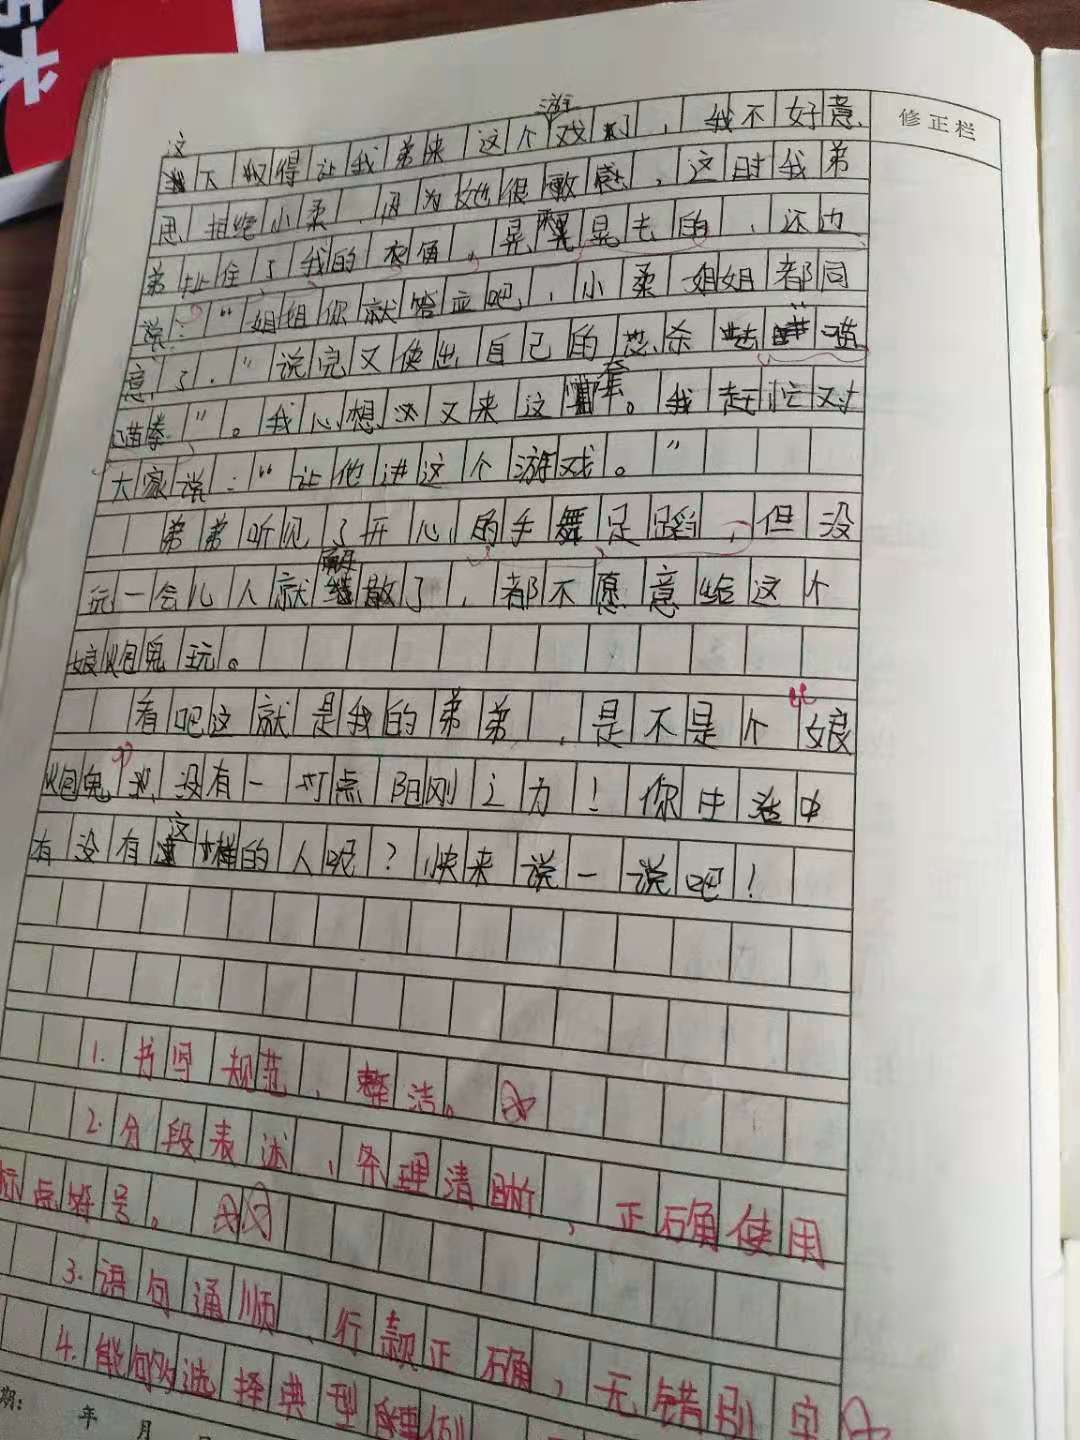 修正栏
这 游
不得让我弟来这个戏了，我不好意
思拒绝小柔，因为她很敏感，这时我弟
弟扯住了我的衣角，晃晃晃去的，还边
说：“姐姐你就答应吧，小柔姐姐都同
意了。”说完又使出自己的必杀
”。我心想又来这套。我赶忙对
大家说：“让他进这个游戏。”
弟弟听见了开心的手舞足蹈，但没
玩一会儿人就解散了，都不愿意给这个
娘炮鬼玩。
看吧这就是我的弟弟，是不是个“娘
炮鬼”没有一点阳刚之力！你生活中
有没有这样的人呢？快来说一说吧！
1.书写规范、整洁。
2.分段表述，条理清晰，正确使用
标点符号。
3.语句通顺、行款正确，无错别字
4.能够选择典型
期： 年 月